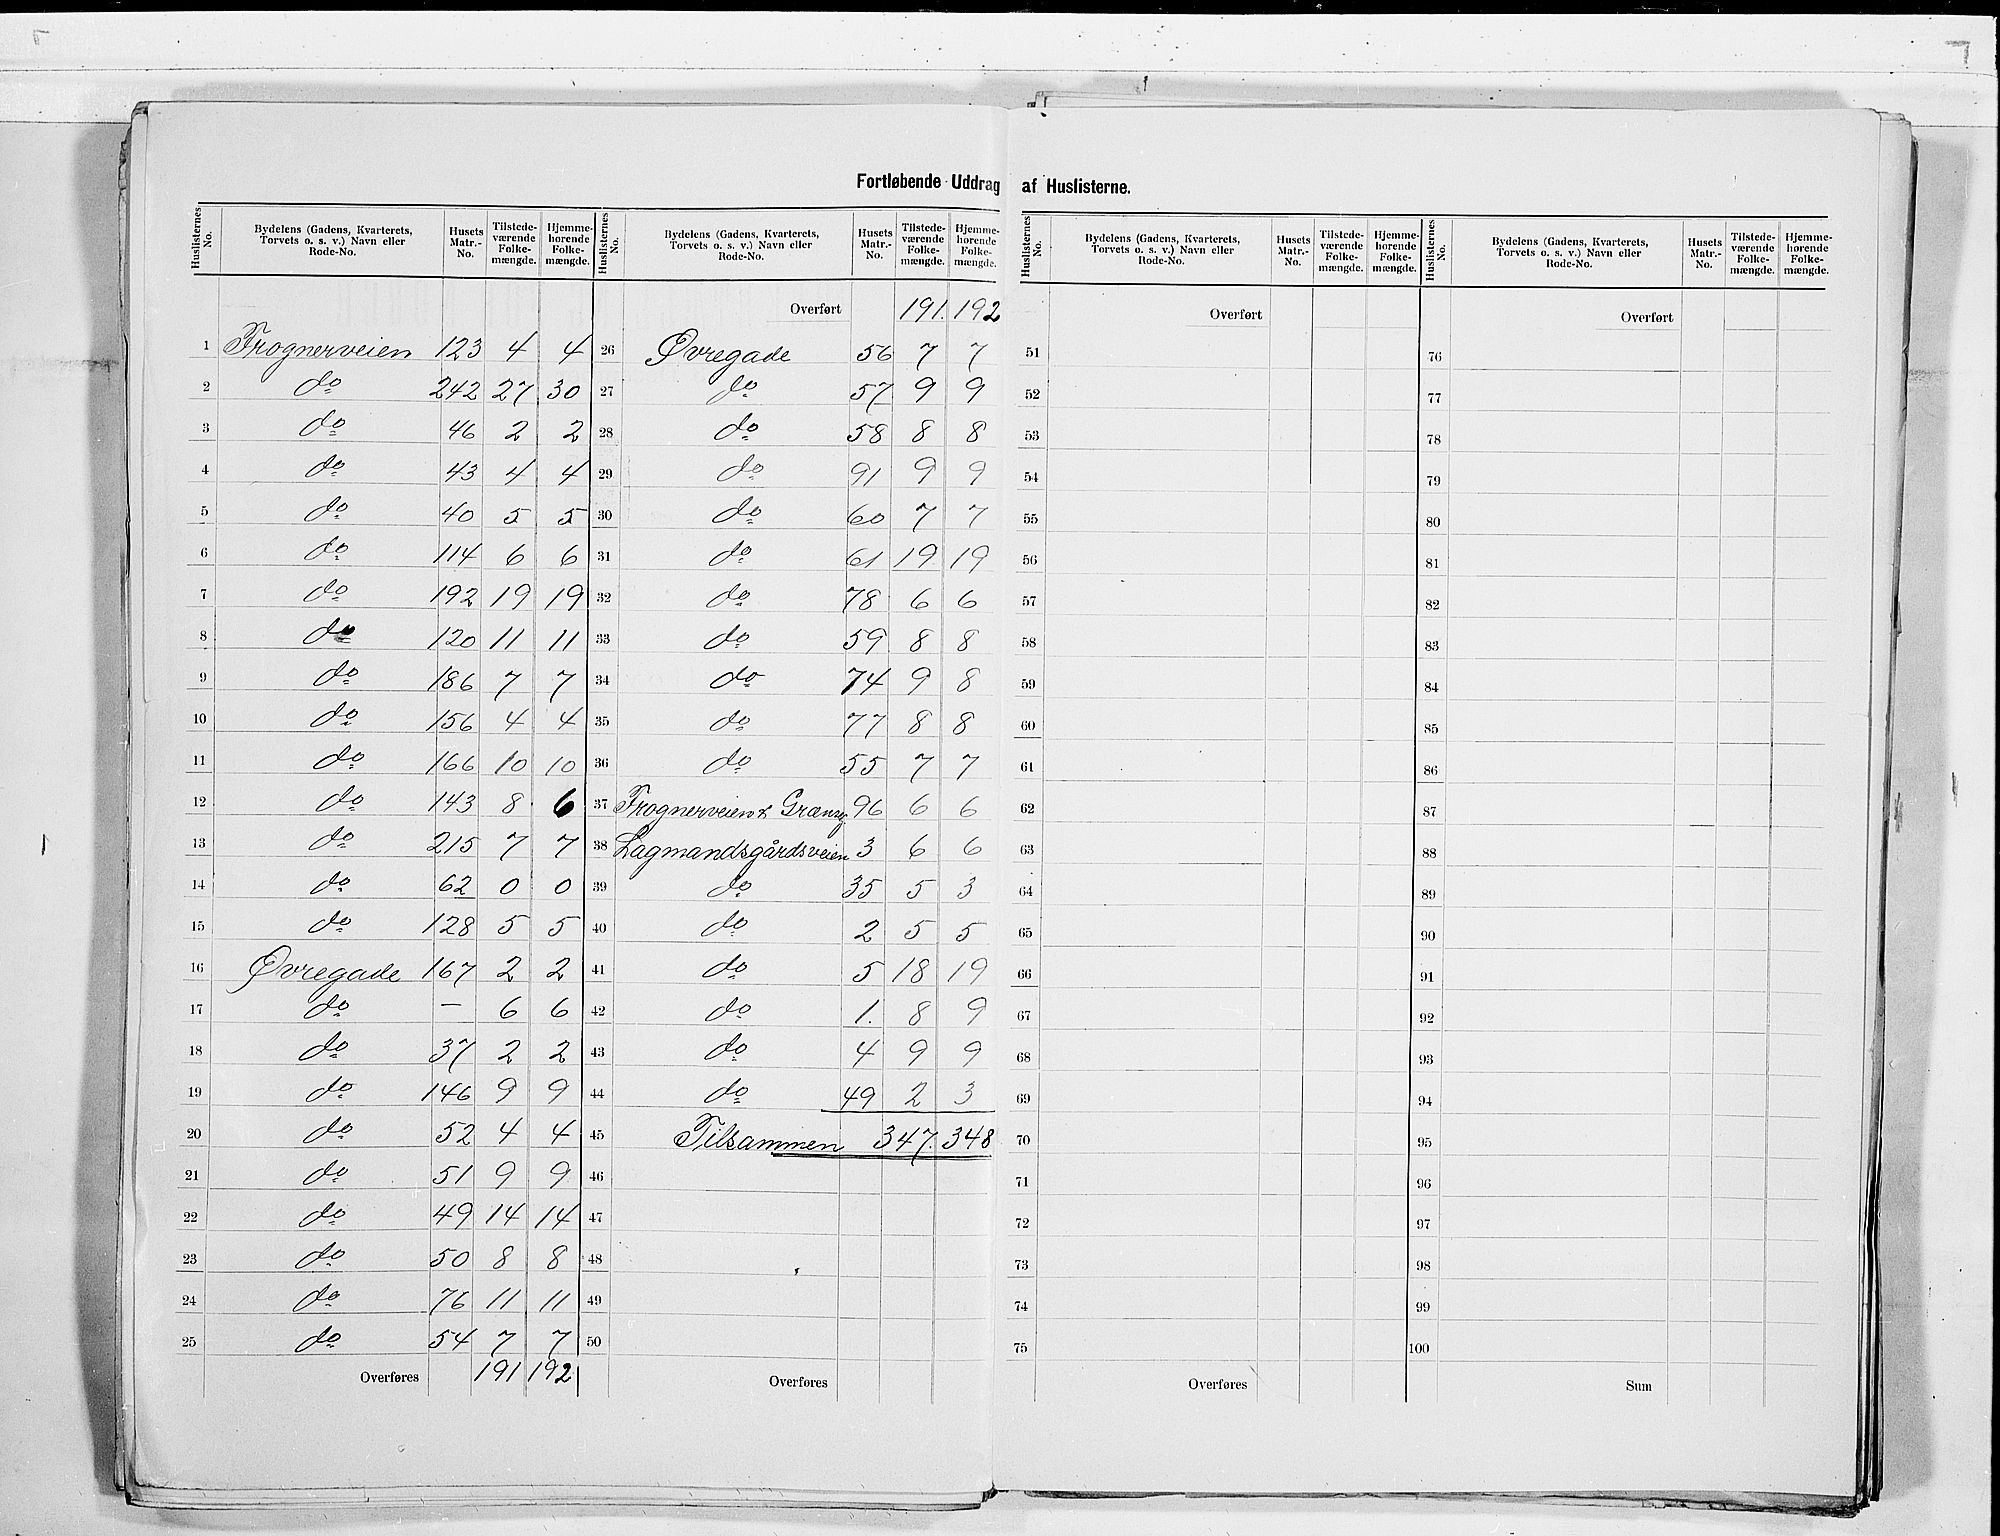 Fortløbende Uddrag af Huslisterne.
Huslisternes No. Bydelens (Gadens, Kvarterets, Torvets o. s. v.) Navn eller Rode-No. Husets Matr.-No. Tilstedeværende Folkemængde. Hjemmehørende Folkemængde.
1 Frognerveien 123 4 4
2 do 242 27 30
3 do 46 2 2
4 do 43 4 4
5 do 40 5 5
6 do 114 6 6
7 do 192 19 19
8 do 120 11 11
9 do 186 7 7
10 do 156 4 4
11 do 166 10 10
12 do 143 8 6
13 do 215 7 7
14 do 62 0 0
15 do 128 5 5
16 Øvregade 167 2 2
17 do — 6 6
18 do 37 2 2
19 do 146 9 9
20 do 52 4 4
21 do 51 9 9
22 do 49 14 14
23 do 50 8 8
24 do 76 11 11
25 do 54 7 7
Overføres 191 192
Huslisternes No. Bydelens (Gadens, Kvarterets, Torvets o. s. v.) Navn eller Rode-No. Husets Matr.-No. Tilstedeværende Folkemængde. Hjemmehørende Folkemængde.
Overført 191. 192
26 Øvregade 56 7 7
27 do 57 9 9
28 do 58 8 8
29 do 91 9 9
30 do 60 7 7
31 do 61 19 19
32 do 78 6 6
33 do 59 8 8
34 do 74 9 8
35 do 77 8 8
36 do 55 7 7
37 Frognerveien & Grænseg 96 6 6
38 Lagmandsgårdsveien 3 6 6
39 do 35 5 3
40 do 2 5 5
41 do 5 18 19
42 do 1. 8 9
43 do 4 9 9
44 do 49 2 3
45 Tilsammen 347. 348
46
47
48
49
50
Overføres
Huslisternes No. Bydelens (Gadens, Kvarterets, Torvets o. s. v.) Navn eller Rode-No. Husets Matr.-No. Tilstedeværende Folkemængde. Hjemmehørende Folkemængde.
Overført
51
52
53
54
55
56
57
58
59
60
61
62
63
64
65
66
67
68
69
70
71
72
73
74
75
Overføres
Huslisternes No. Bydelens (Gadens, Kvarterets, Torvets o. s. v.) Navn eller Rode-No. Husets Matr.-No. Tilstedeværende Folkemængde. Hjemmehørende Folkemængde.
Overført
76
77
78
79
80
81
82
83
84
85
86
87
88
89
90
91
92
93
94
95
96
97
98
99
100
Sum